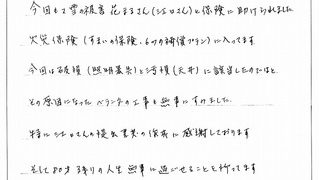 今回もて雪の被害 花まるさん(シエロさん)と保険に助けられました
火災保険(すまいの保険、6つの補償プラン)に入ってます
今回は破損(照明器具)と汚損(天井)に該当したのではと
その原因になったベランダの工事も無事にすみました.
特にシエロさんの提出書類の作成に感謝しております
そして80才 残りの人生 無事に過ごせることを祈ってます